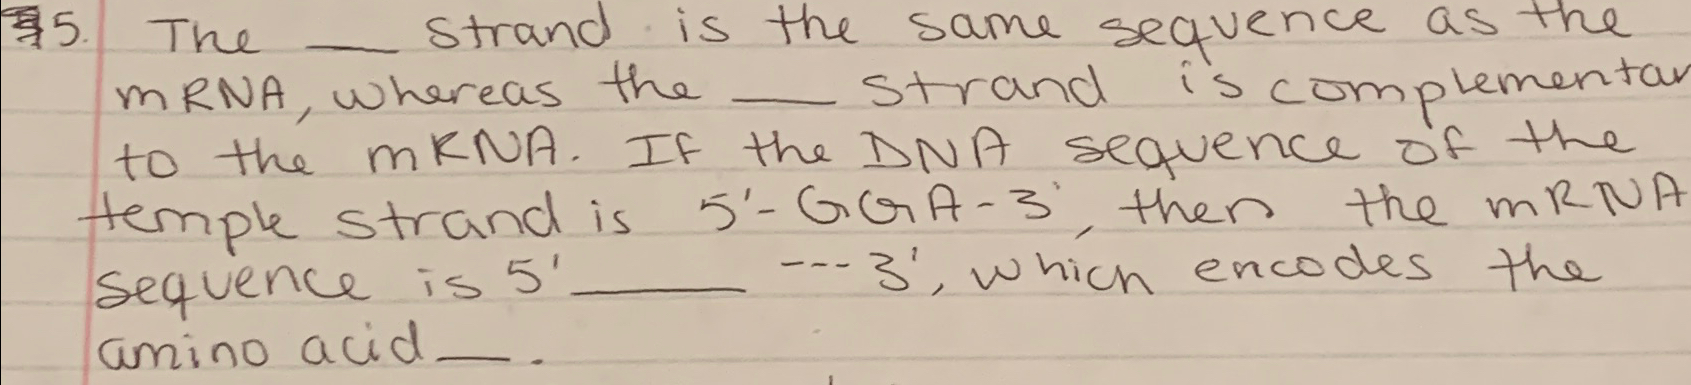 5. The ___ strand is the same sequence as the
mRNA, whereas the ___ strand is complementar
to the mRNA. If the DNA sequence of the
temple strand is 5'-GGA-3', then the mRNA
sequence is 5' _____ ---3', which encodes the
amino acid ___.